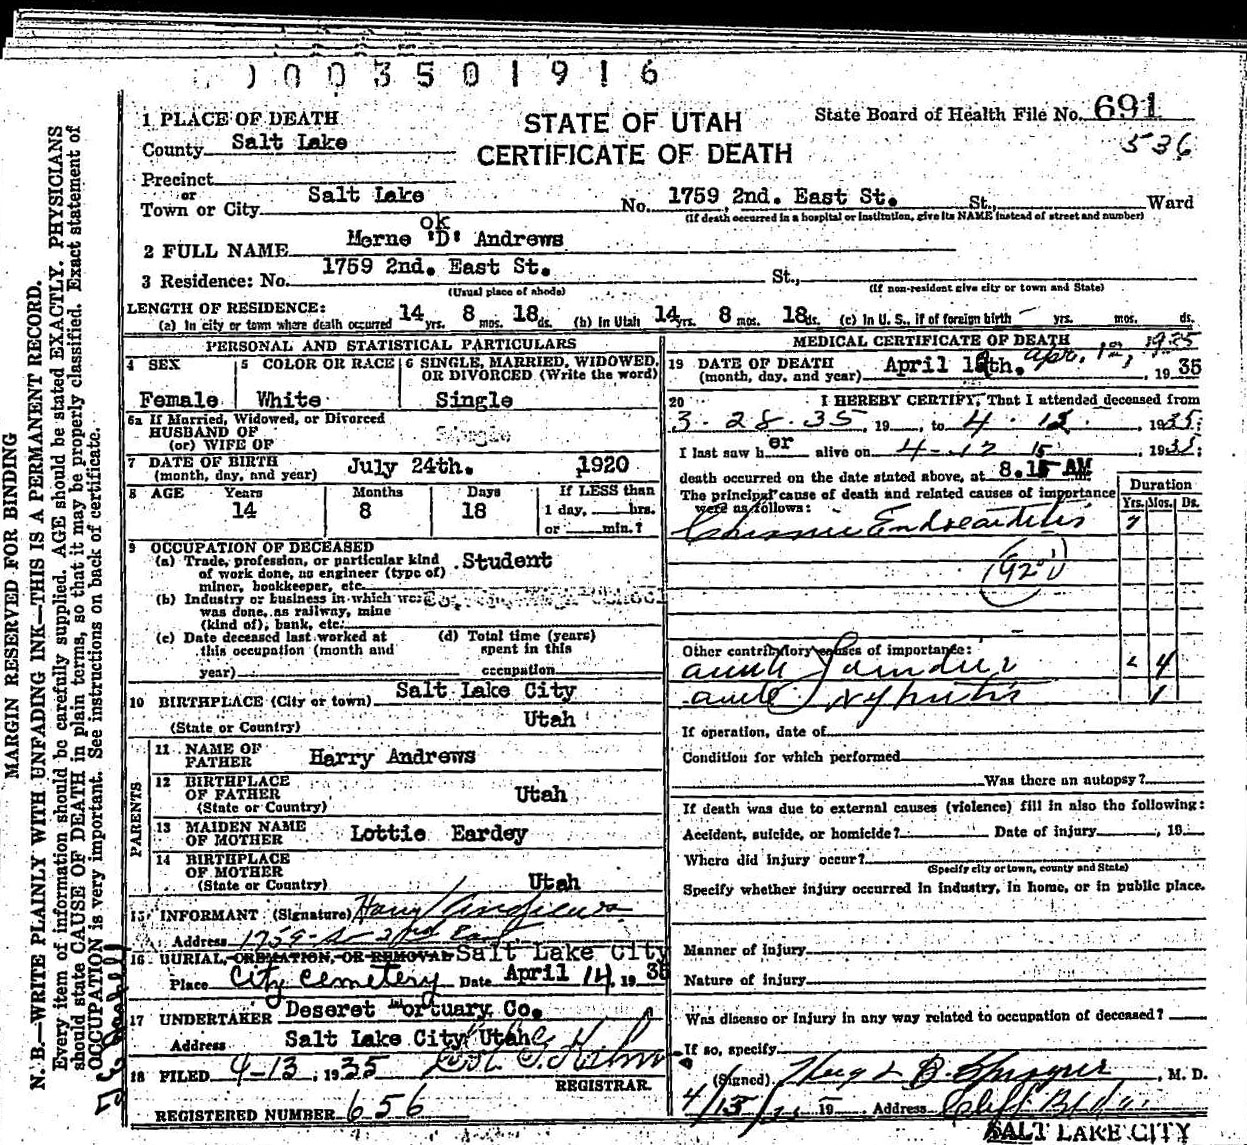 003501916
1 PLACE OF DEATH
STATE OF UTAH
CERTIFICATE OF DEATH
State Board of Health File No. 691
536
County Salt Lake
Precinct
or
Town or City Salt Lake No. 1759 2nd. East St. St., Ward
(If death occurred in a hospital or institution, give its NAME instead of street and number)
ok
2 FULL NAME Merne "D" Andrews
3 Residence: No. 1759 2nd. East St. St.,
(Usual place of abode) (If non-resident give city or town and State)
LENGTH OF RESIDENCE:
(a) In city or town where death occurred 14 yrs. 8 mos. 18 ds. (b) In Utah 14 yrs. 8 mos. 18 ds. (c) In U. S., if of foreign birth — yrs. mos. ds.
PERSONAL AND STATISTICAL PARTICULARS
4 SEX
Female
5 COLOR OR RACE
White
6 SINGLE, MARRIED, WIDOWED, OR DIVORCED (Write the word)
Single
6a If Married, Widowed, or Divorced
HUSBAND OF
(or) WIFE OF
Single
7 DATE OF BIRTH
(month, day, and year) July 24th. 1920
8 AGE Years Months Days If LESS than
14 8 18 1 day, hrs.
or min.?
9 OCCUPATION OF DECEASED
(a) Trade, profession, or particular kind of work done, as engineer (type of) miner, bookkeeper, etc. Student
(b) Industry or business in which work was done, as railway, mine (kind of), bank, etc.
(c) Date deceased last worked at this occupation (month and year)
(d) Total time (years) spent in this occupation
10 BIRTHPLACE (City or town) Salt Lake City
(State or Country) Utah
PARENTS
11 NAME OF FATHER Harry Andrews
12 BIRTHPLACE OF FATHER
(State or Country) Utah
13 MAIDEN NAME OF MOTHER Lottie Eardey
14 BIRTHPLACE OF MOTHER
(State or Country) Utah
15 INFORMANT (Signature) Harry Andrews
Address 1759 - So 2nd East
16 BURIAL, CREMATION, OR REMOVAL Salt Lake City
Place City Cemetery Date April 14, 1935
17 UNDERTAKER Deseret Mortuary Co.
Address Salt Lake City Utah
18 FILED 4-13, 1935
REGISTRAR.
REGISTERED NUMBER 656
MEDICAL CERTIFICATE OF DEATH
19 DATE OF DEATH
(month, day, and year) April 12th. Apr. 12, 1935, 1935
20 I HEREBY CERTIFY, That I attended deceased from
3-28-35, 19 , to 4-12, 1935;
I last saw her alive on 4-12, 1935;
death occurred on the date stated above, at 8.15 AM m.
The principal cause of death and related causes of importance were as follows:
Duration
Yrs. Mos. Ds.
Chronic Endocarditis
(92)
Other contributory causes of importance:
acute Jaundice 4
acute Nephritis 1
If operation, date of
Condition for which performed
Was there an autopsy?
If death was due to external causes (violence) fill in also the following:
Accident, suicide, or homicide? Date of injury , 19
Where did injury occur?
(Specify city or town, county and State)
Specify whether injury occurred in industry, in home, or in public place.
Manner of injury
Nature of injury
Was disease or injury in any way related to occupation of deceased?
If so, specify
(Signed) Hugh B. Sprague, M. D.
4/13/35 19 Address Cliff Bldg.
SALT LAKE CITY
MARGIN RESERVED FOR BINDING
N. B.—WRITE PLAINLY WITH UNFADING INK—THIS IS A PERMANENT RECORD.
Every item of information should be carefully supplied. AGE should be stated EXACTLY. PHYSICIANS
should state CAUSE OF DEATH in plain terms, so that it may be properly classified. Exact statement of
OCCUPATION is very important. See instructions on back of certificate.